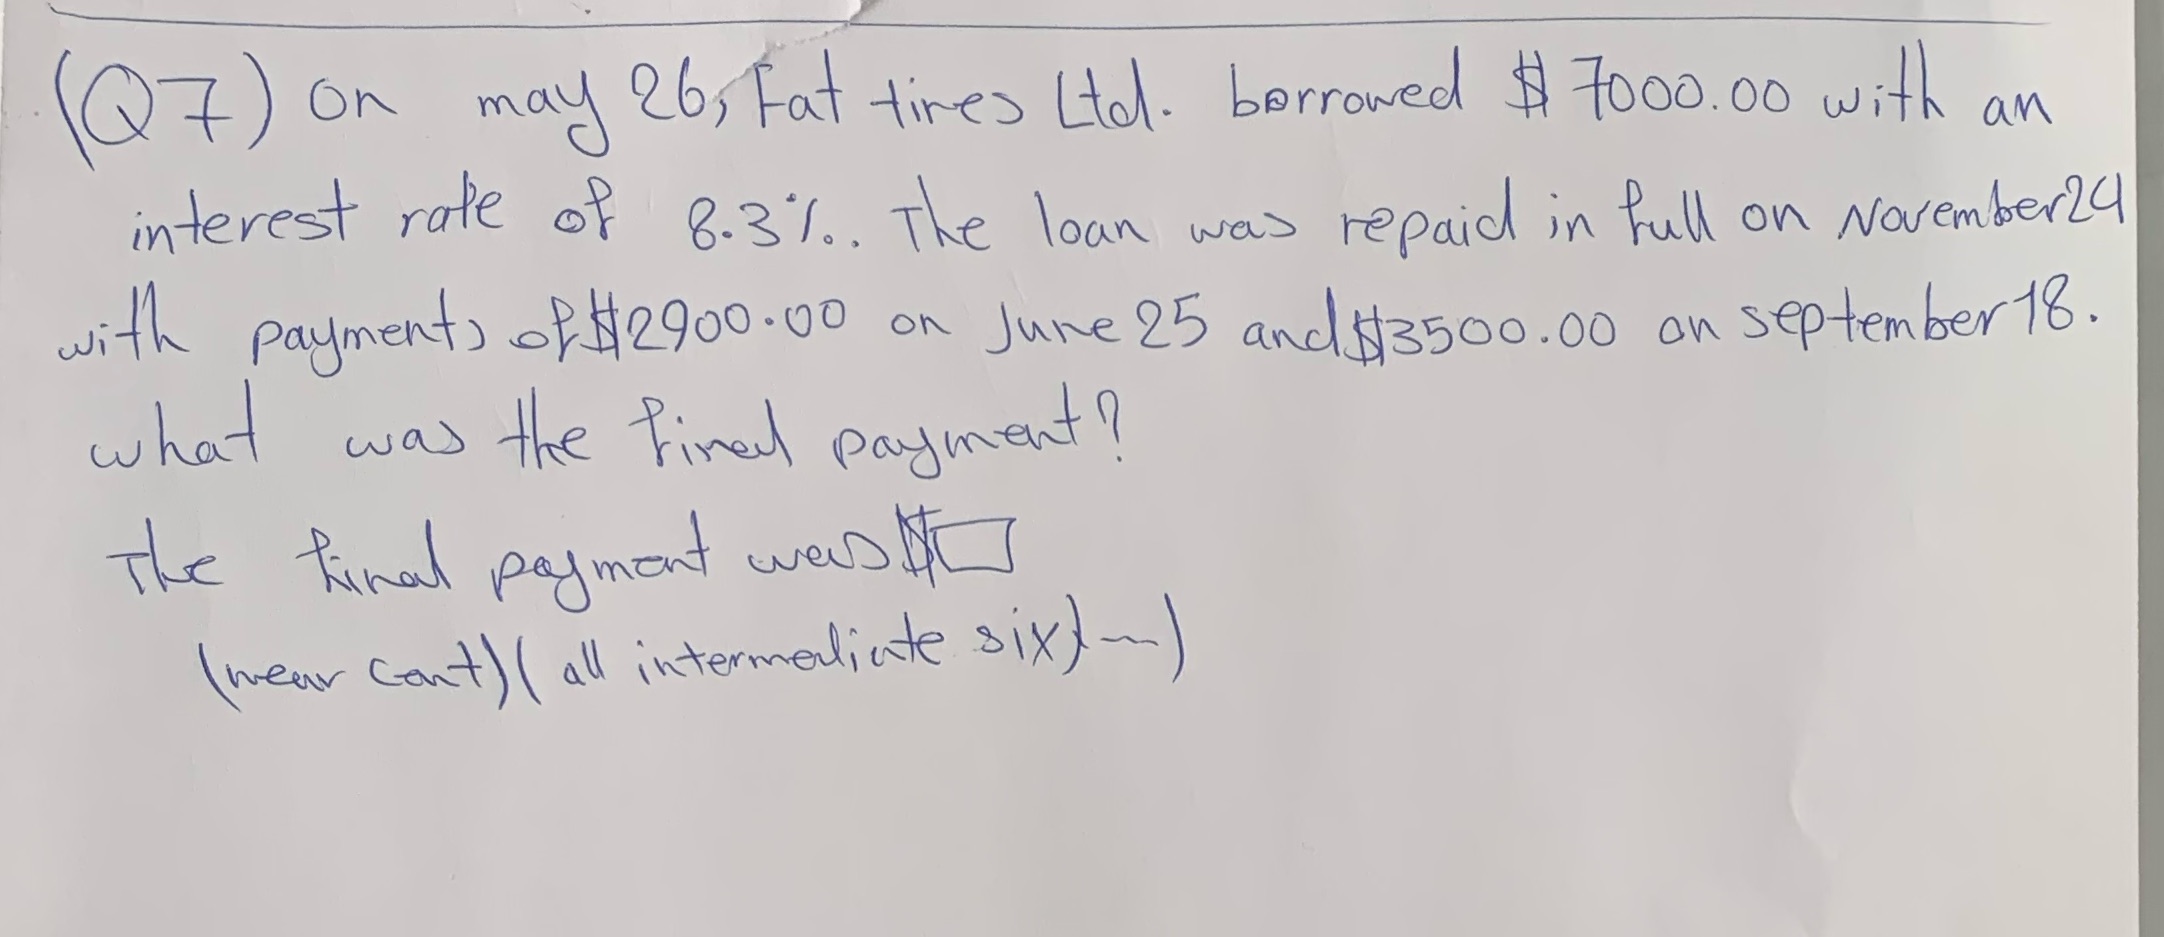 (Q7) on may 26, Fat tires Ltd. borrowed $7000.00 with an
interest rate of 8.3%.. The loan was repaid in full on November 24
with payments of $2900.00 on June 25 and $3500.00 on september 18.
what was the final payment?
The final payment was $
(near cent) (all intermediate six)